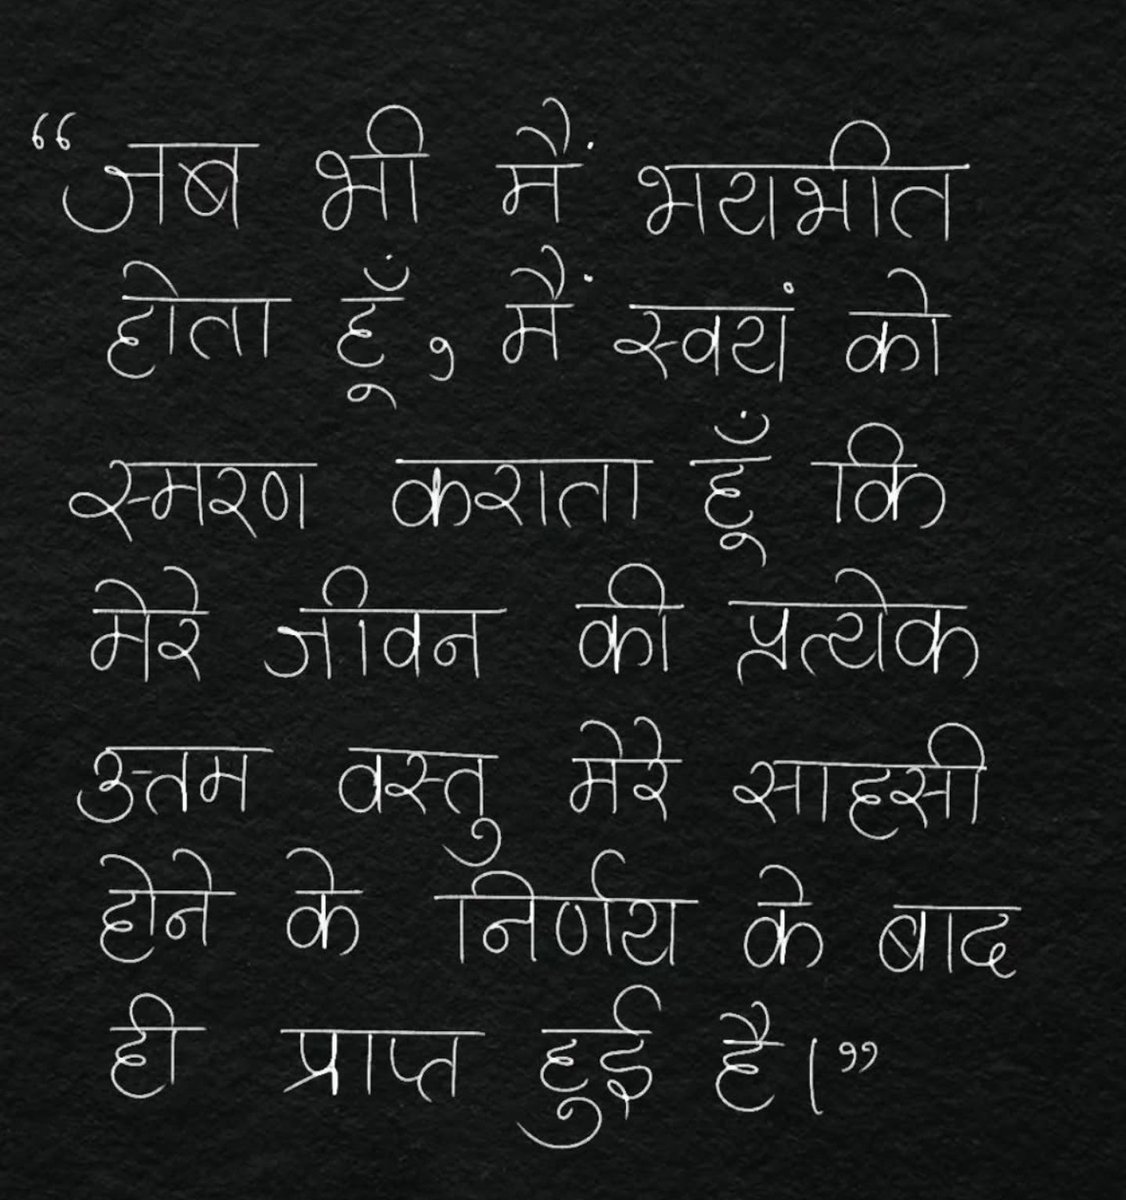 “जब भी मैं भयभीत
होता हूँ, मैं स्वयं को
स्मरण कराता हूँ कि
मेरे जीवन की प्रत्येक
उत्तम वस्तु मेरे साहसी
होने के निर्णय के बाद
ही प्राप्त हुई है।”